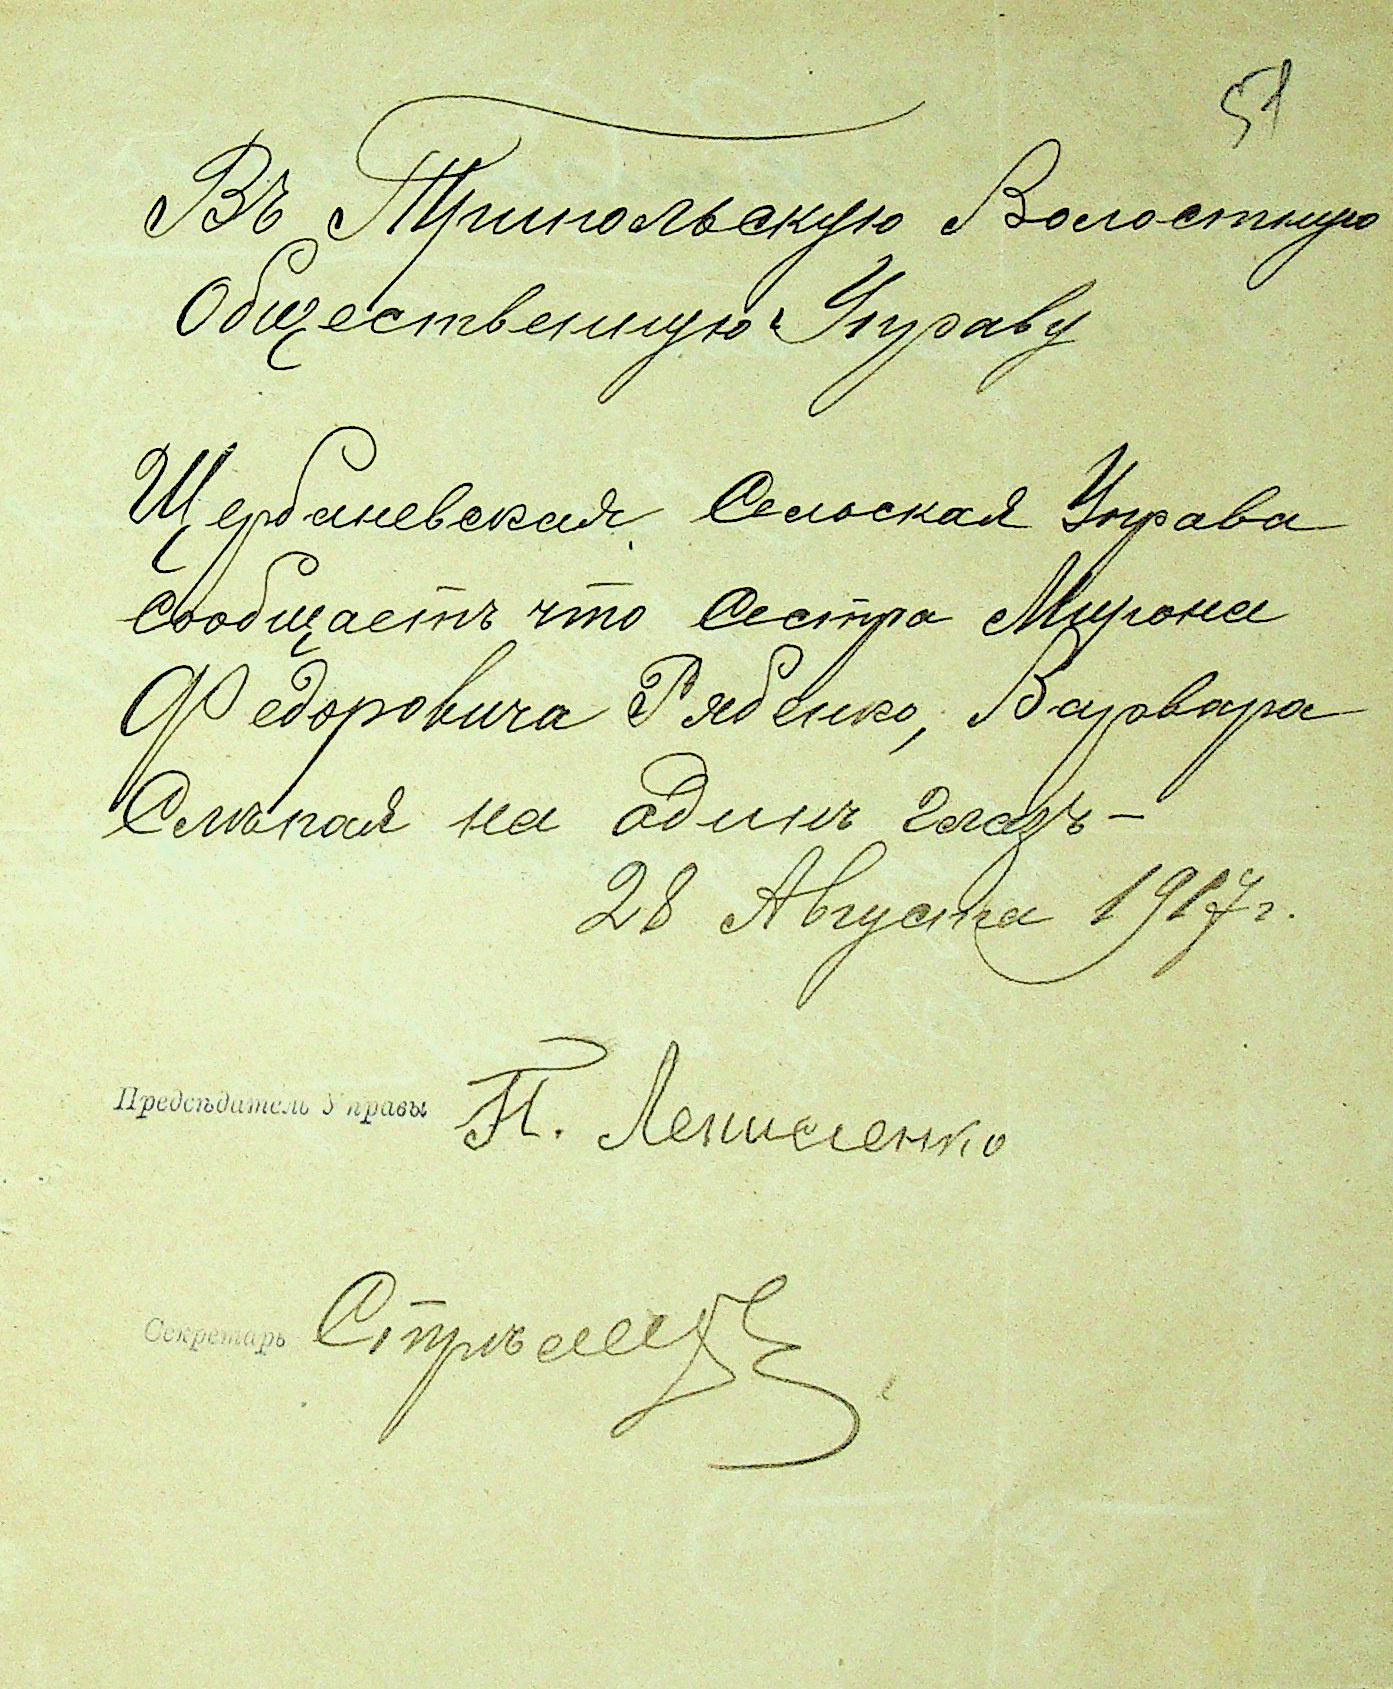 51
Въ Трипольскую Волостную
Общественную Управу
Щербаневская Сельская Управа
сообщаетъ что Сестра Мирона
Федоровича Рябенко, Варвара
Слѣпая на один глазъ –
28 Августа 1917 г.
Предсѣдатель Управы П.
Секретарь